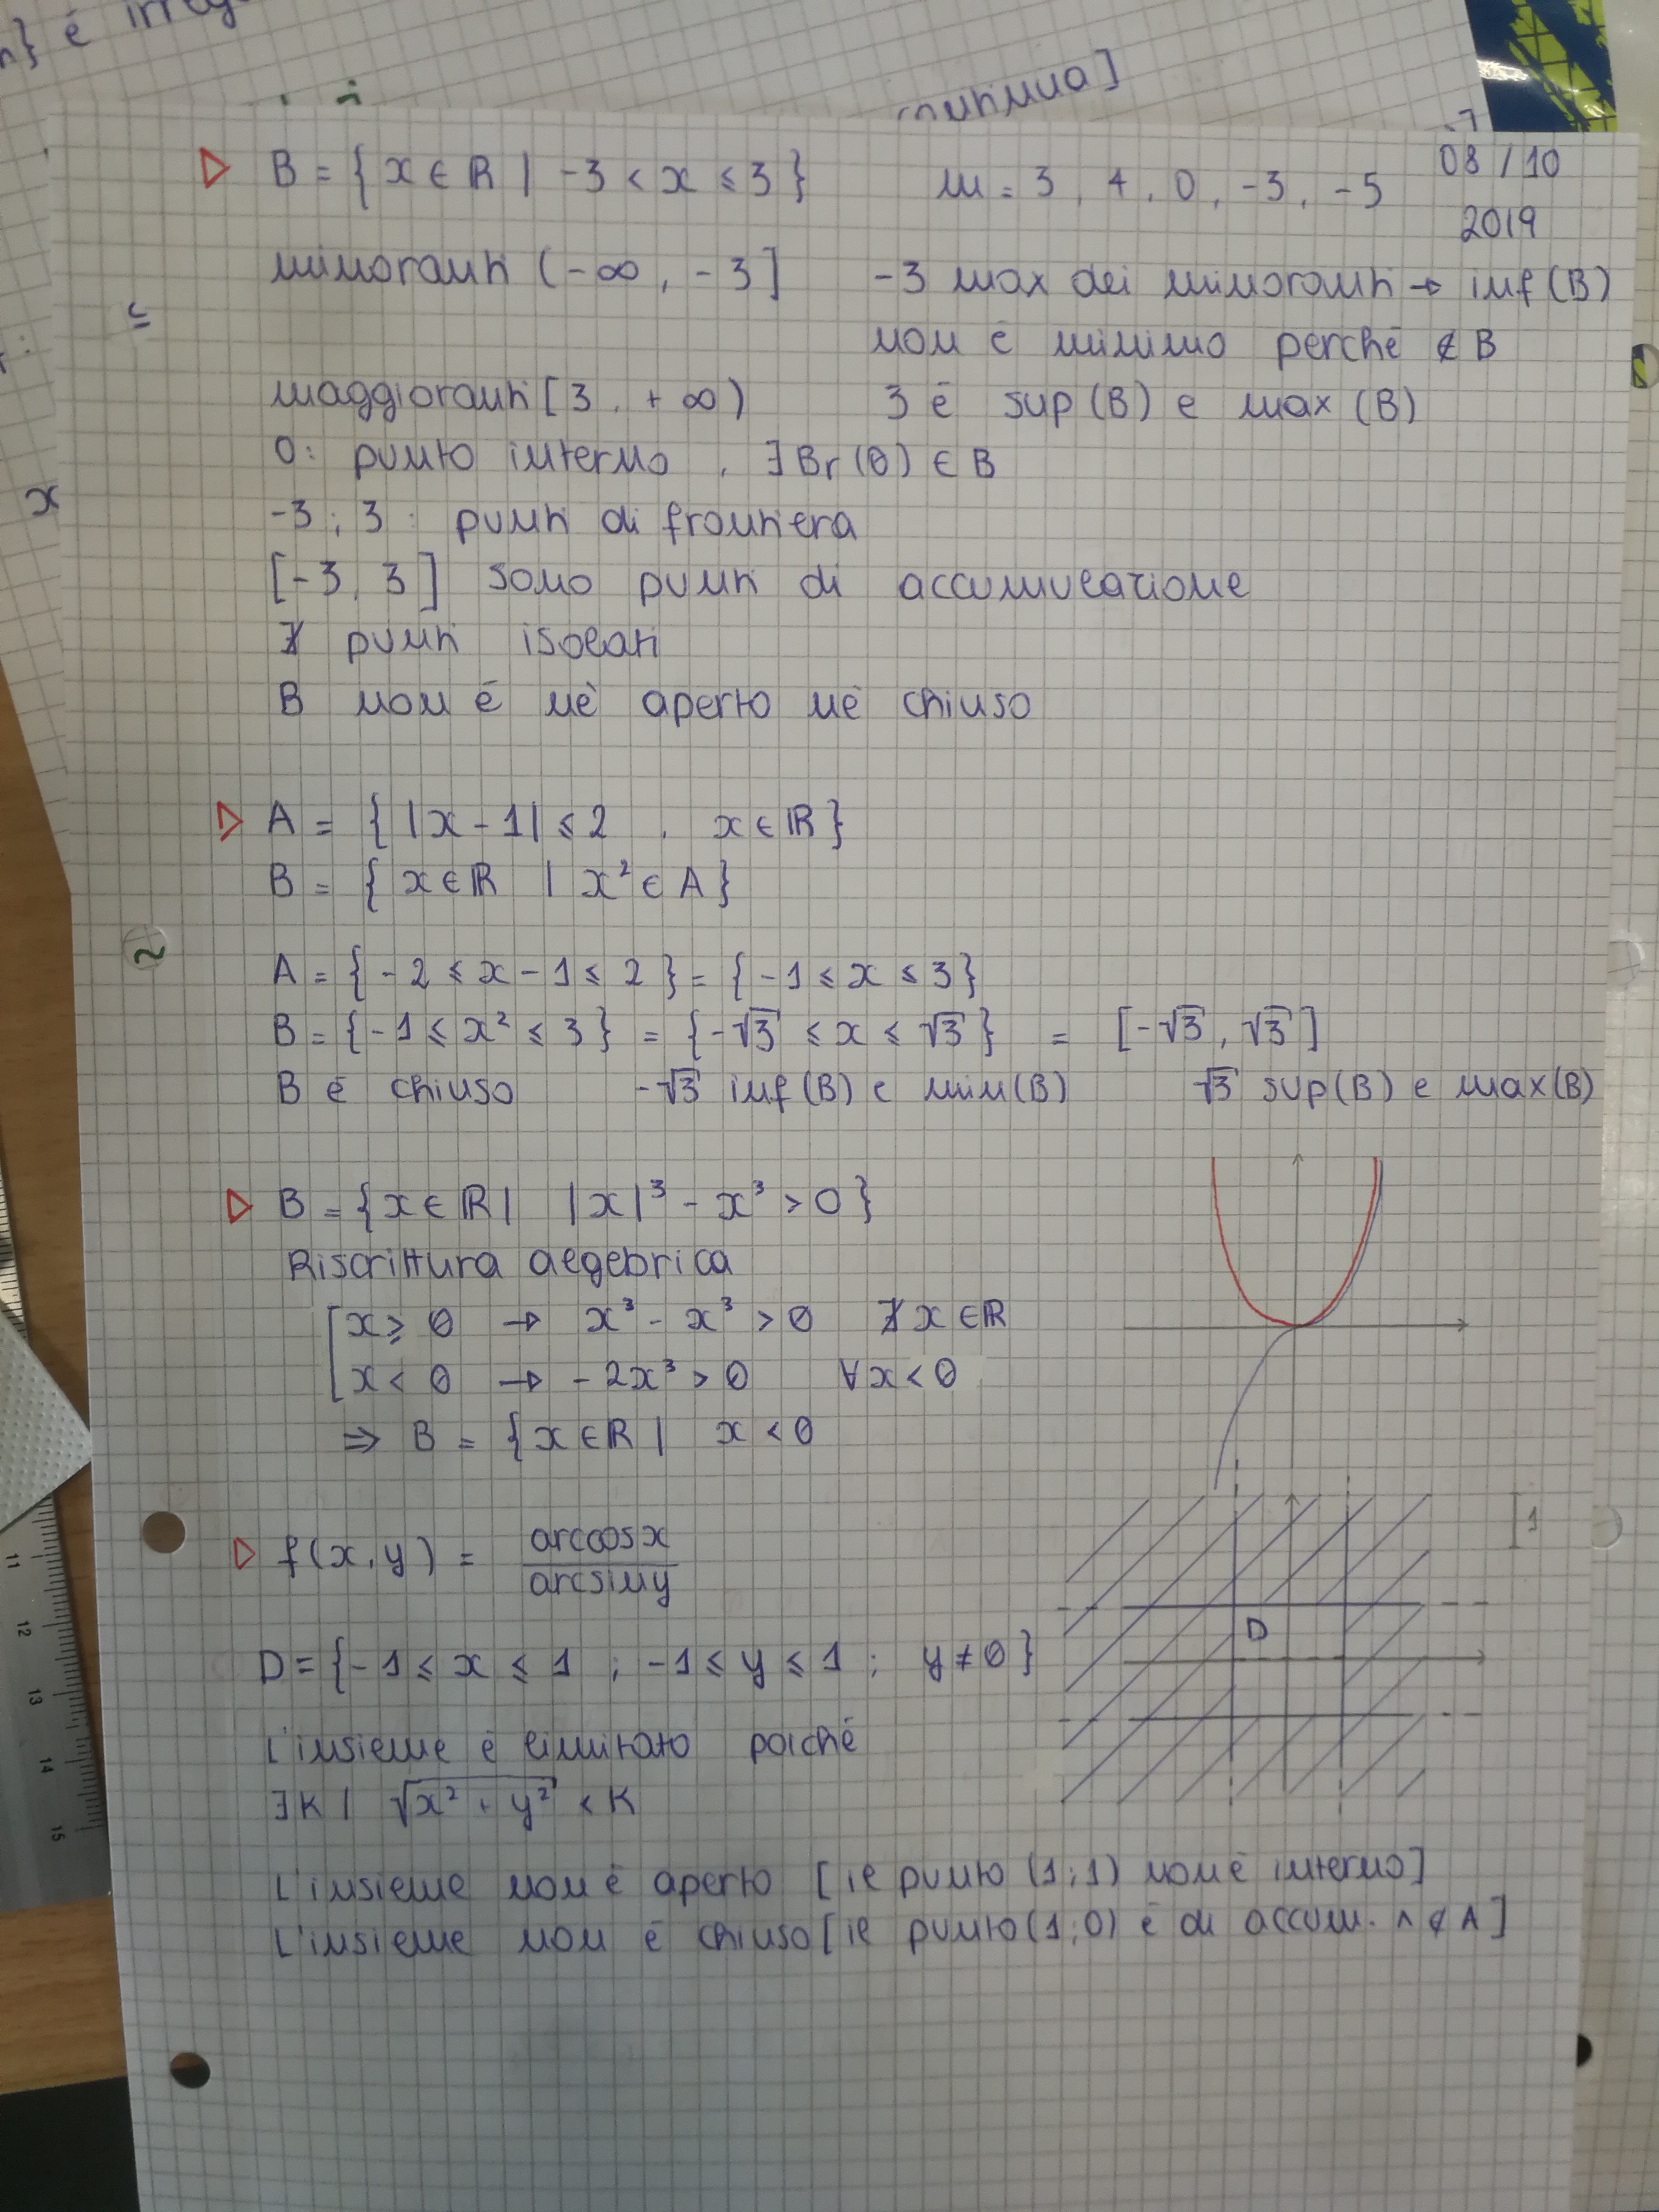 n} é
continua]
▷ B = { x ∈ ℝ | -3 < x ≤ 3 } m = 3, 4, 0, -3, -5 08/10
2019
minoranti (-∞, -3] -3 max dei minoranti → inf(B)
non è minimo perché ∉ B
maggioranti [3, +∞) 3 è sup(B) e max(B)
0: punto interno, ∃ Br(0) ∈ B
-3; 3: punti di frontiera
[-3, 3] sono punti di accumulazione
∄ punti isolati
B non é né aperto né chiuso
▷ A = { |x - 1| ≤ 2, x ∈ ℝ }
B = { x ∈ ℝ | x² ∈ A }
A = { -2 ≤ x - 1 ≤ 2 } = { -1 ≤ x ≤ 3 }
B = { -1 ≤ x² ≤ 3 } = { -√3 ≤ x ≤ √3 } = [-√3, √3]
B é chiuso -√3 inf(B) e min(B) √3 sup(B) e max(B)
▷ B = { x ∈ ℝ | |x|³ - x³ > 0 }
Riscrittura algebrica
x ≥ 0 → x³ - x³ > 0 ∄ x ∈ ℝ
x < 0 → -2x³ > 0 ∀ x < 0
⇒ B = { x ∈ ℝ | x < 0
▷ f(x, y) = arccosx / arcsiny
1
D
D = { -1 ≤ x ≤ 1 ; -1 ≤ y ≤ 1 ; y ≠ 0 }
L'insieme é limitato poiché
∃ K | √(x² + y²) < K
L'insieme non é aperto [il punto (1;1) non é interno]
L'insieme non é chiuso [il punto (1;0) é di accum. ∧ ∉ A]
11
12
13
14
15